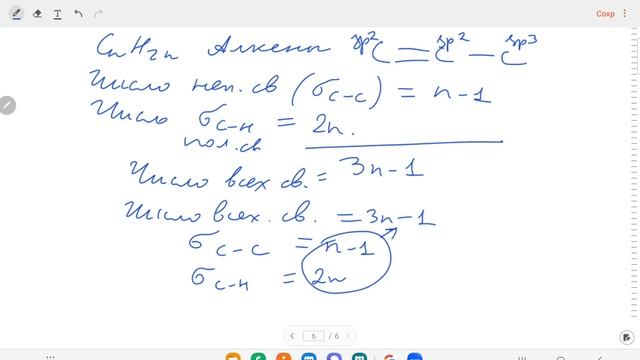 Сохр
CnH2n Алкены sp2C=sp2C-sp3C
Число неп. св (σC-C) = n-1
Число σC-H = 2n.
пол. св
Число всех св. = 3n-1
Число всех. св. = 3n-1
σC-C = n-1
σC-H = 2n
6 / 6